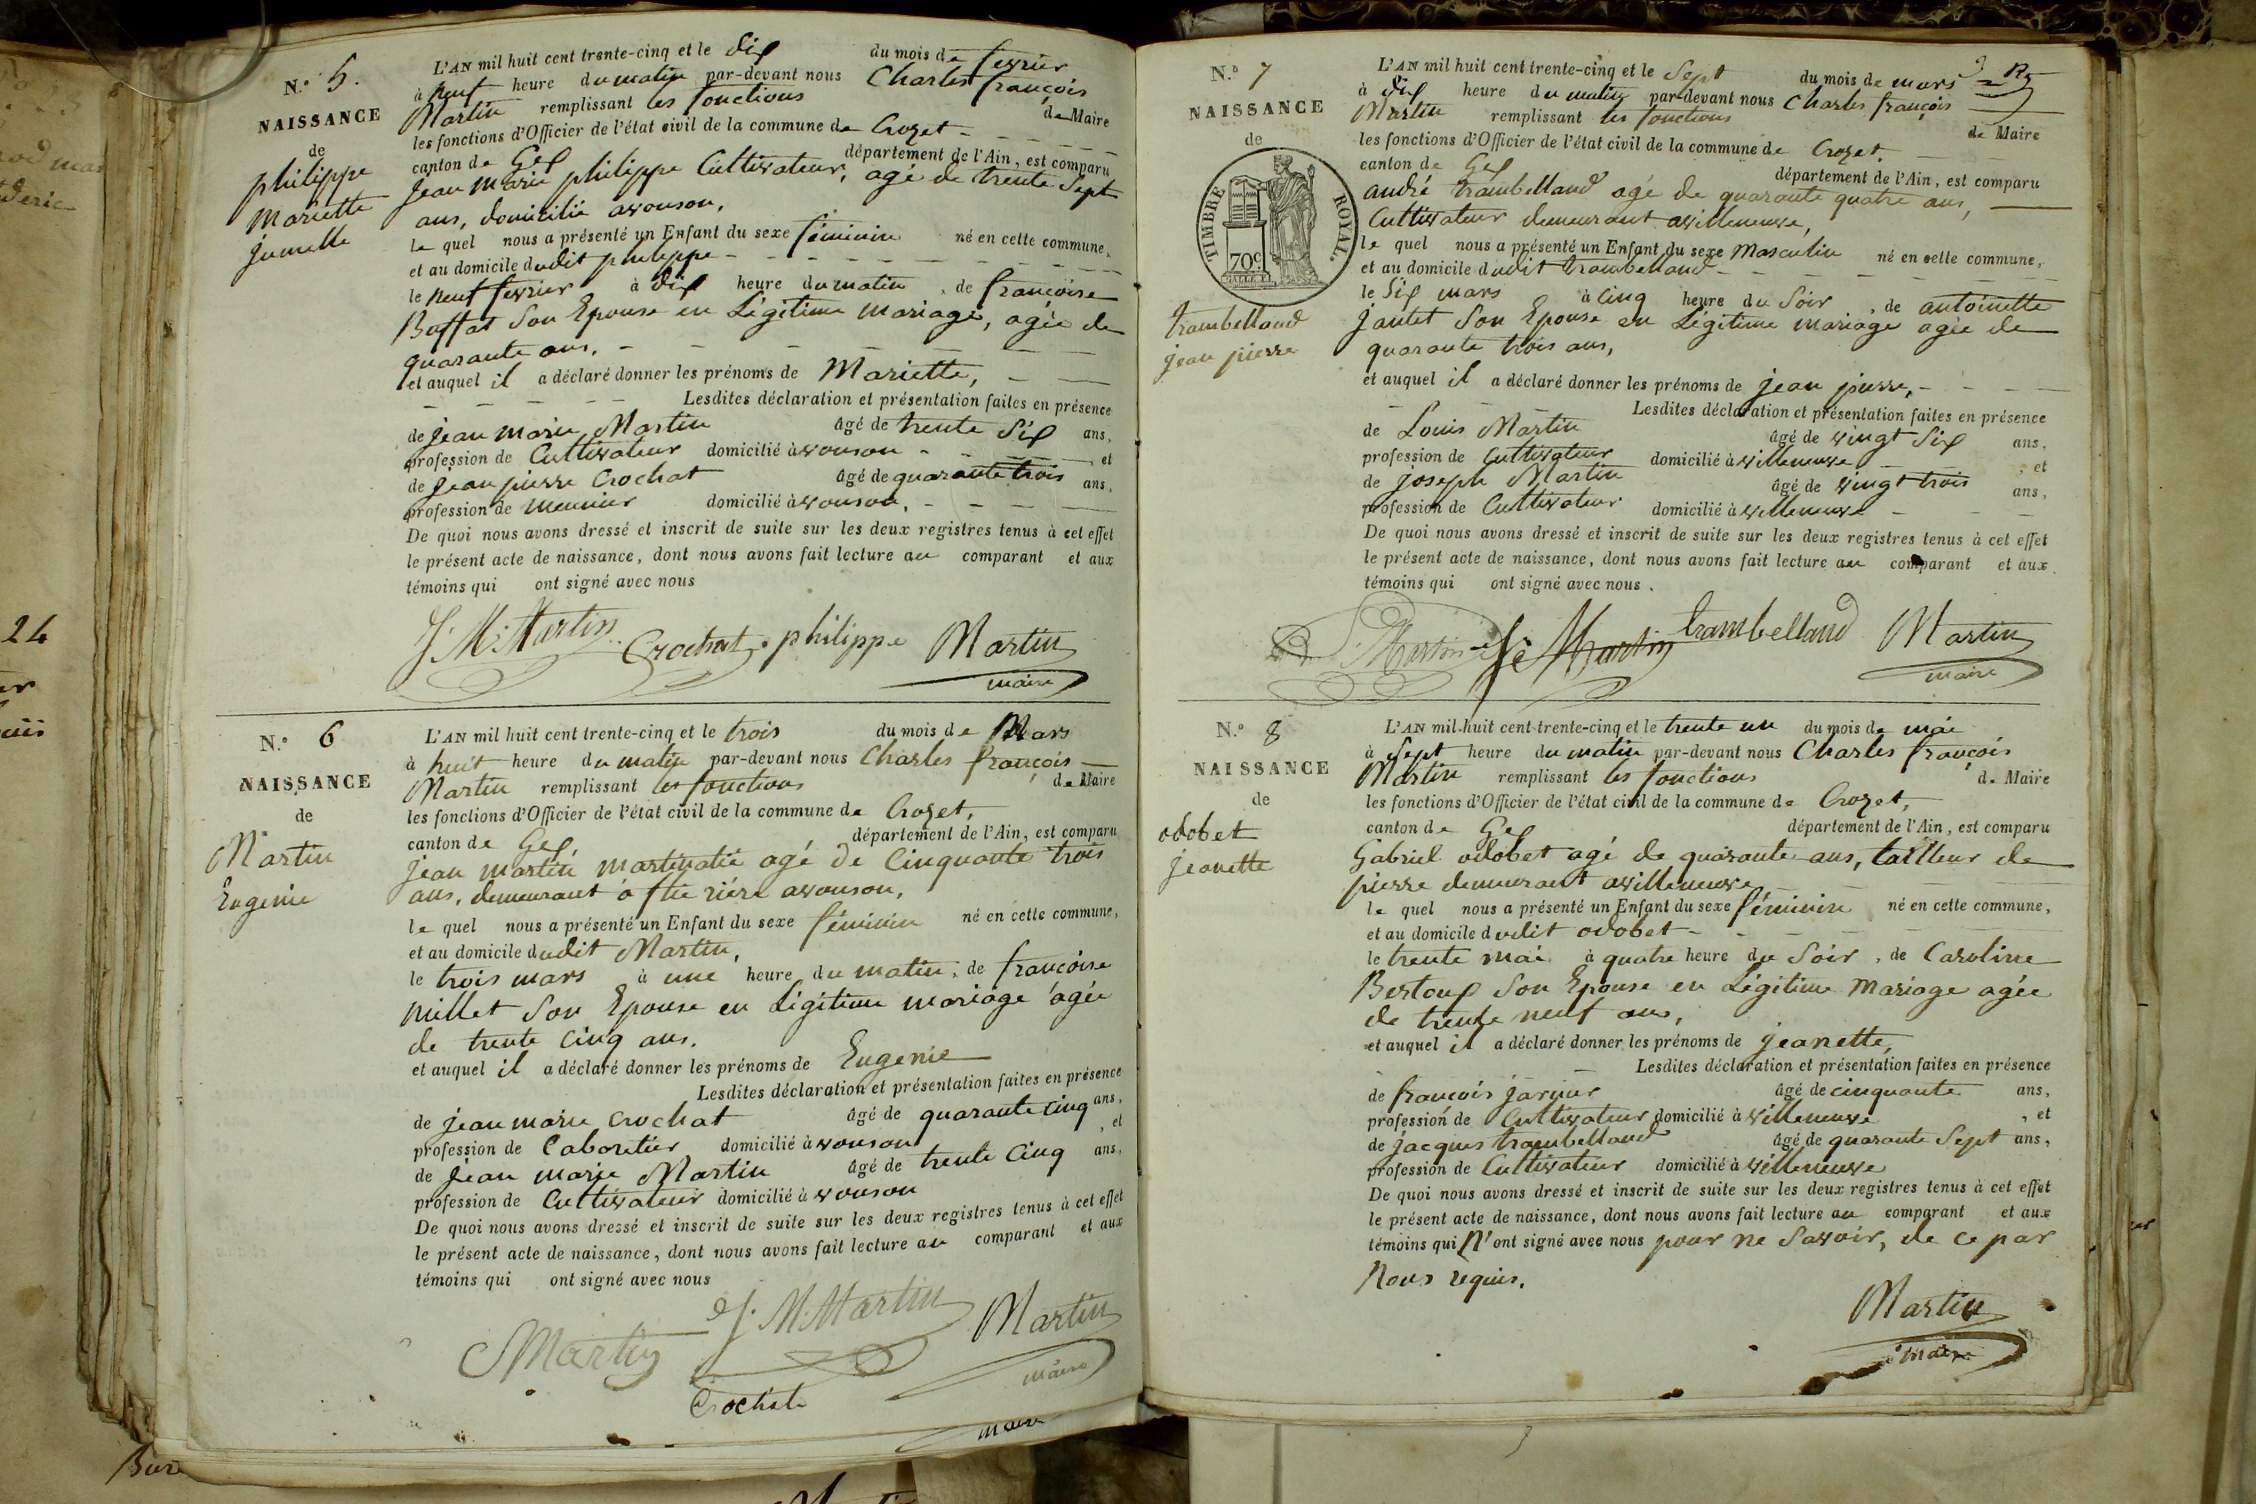 N.° 5.
NAISSANCE
de
philippe
Mariette
Jumelle
L'AN mil huit cent trente-cinq et le dix du mois de fevrier
à neuf heure du matin par-devant nous Charles françois
Martin remplissant les fonctions de Maire
les fonctions d'Officier de l'état civil de la commune de Crozet
canton de Gex département de l'Ain, est comparu
Jean marie philippe Cultivateur, agé de trente sept
ans, domicilié avouson,
le quel nous a présenté un Enfant du sexe féminin né en cette commune,
et au domicile dudit philippe
le neuf fevrier à dix heure du matin, de françoise
Buffat son Epouse en Légitime mariage, agée de
quarante ans.
et auquel il a déclaré donner les prénoms de Mariette,
Lesdites déclaration et présentation faites en présence
de jean marie Martin âgé de trente six ans,
profession de Cultivateur domicilié à vouson, et
de jean pierre Crochat âgé de quarante trois ans,
profession de meunier domicilié à vouson,
De quoi nous avons dressé et inscrit de suite sur les deux registres tenus à cet effet
le présent acte de naissance, dont nous avons fait lecture au comparant et aux
témoins qui ont signé avec nous
J. M. Martin Crochat philippe Martin
maire
N.° 6
NAISSANCE
de
Martin
Eugenie
L'AN mil huit cent trente-cinq et le trois du mois de Mars
à huit heure du matin par-devant nous Charles françois
Martin remplissant les fonctions de Maire
les fonctions d'Officier de l'état civil de la commune de Crozet,
canton de Gex, département de l'Ain, est comparu
jean martin agé de Cinquante trois
ans, demeurant à rière avouson,
le quel nous a présenté un Enfant du sexe féminin né en cette commune,
et au domicile dudit Martin,
le trois mars à une heure du matin, de françoise
Millet son Epouse en Légitime mariage agée
de trente cinq ans.
et auquel il a déclaré donner les prénoms de Eugenie
Lesdites déclaration et présentation faites en présence
de jean marie Crochat âgé de quarante cinq ans,
profession de domicilié à vouson, et
de jean marie Martin âgé de trente cinq ans,
profession de Cultivateur domicilié à vouson
De quoi nous avons dressé et inscrit de suite sur les deux registres tenus à cet effet
le présent acte de naissance, dont nous avons fait lecture au comparant et aux
témoins qui ont signé avec nous
Martin J. M. Martin Martin
maire
Crochat
N.° 7
NAISSANCE
de
TIMBRE ROYAL.
70c
trambelland
jean pierre
L'AN mil huit cent trente-cinq et le Sept du mois de mars
à dix heure du matin par-devant nous Charles françois
Martin remplissant les fonctions de Maire
les fonctions d'Officier de l'état civil de la commune de Crozet.
canton de Gex département de l'Ain, est comparu
andré trambelland agé de quarante quatre ans,
Cultivateur demeurant avilleneuve,
le quel nous a présenté un Enfant du sexe Masculin né en cette commune,
et au domicile dudit trambelland
le Six mars à cinq heure du Soir, de antoinette
jantet Son Epouse en Légitime mariage agée de
quarante trois ans,
et auquel il a déclaré donner les prénoms de jean pierre,
Lesdites déclaration et présentation faites en présence
de Louis Martin âgé de vingt Six ans,
profession de Cultivateur domicilié à villeneuve, et
de joseph Martin âgé de vingt trois ans,
profession de Cultivateur domicilié à villeneuve
De quoi nous avons dressé et inscrit de suite sur les deux registres tenus à cet effet
le présent acte de naissance, dont nous avons fait lecture au comparant et aux
témoins qui ont signé avec nous.
Martin Martin trambelland Martin
maire
N.° 8
NAISSANCE
de
odobet
jeanette
L'AN mil huit cent trente-cinq et le trente un du mois de mai
à Sept heure du matin par-devant nous Charles françois
Martin remplissant les fonctions de Maire
les fonctions d'Officier de l'état civil de la commune de Crozet,
canton de Gex département de l'Ain, est comparu
Gabriel odobet agé de quarante ans, tailleur de
pierre demeurant avilleneuve
le quel nous a présenté un Enfant du sexe féminin né en cette commune,
et au domicile dudit odobet
le trente mai à quatre heure du Soir, de Caroline
Bertoux Son Epouse en Légitime Mariage agée
de trente neuf ans,
et auquel il a déclaré donner les prénoms de jeanette,
Lesdites déclaration et présentation faites en présence
de françois jarnier âgé de cinquante ans,
profession de Cultivateur domicilié à villeneuve, et
de jacques trambelland âgé de quarante Sept ans,
profession de Cultivateur domicilié à villeneuve
De quoi nous avons dressé et inscrit de suite sur les deux registres tenus à cet effet
le présent acte de naissance, dont nous avons fait lecture au comparant et aux
témoins qui N'ont signé avec nous pour ne Savoir, de ce par
Nous requis.
Martin
maire